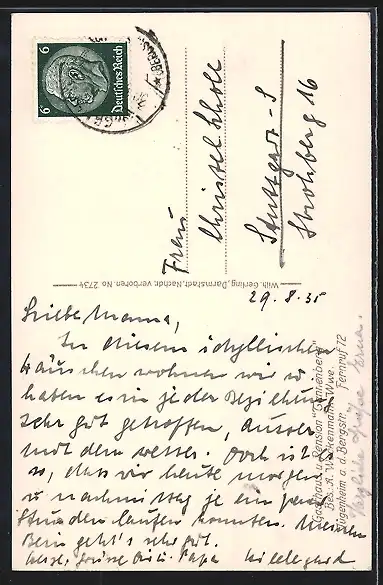 6 Deutsches Reich 6
Frau
Christel Scholl
Stuttgart-S
Strohberg 16
Wilh. Gerling, Darmstadt, Nachdr. verboten No 2734
29.8.35
Liebe Mama,
In diesem idyllischen
Häuschen wohnen wir u.
haben es in jeder Beziehung
sehr gut getroffen, ausser
mit dem Wetter. Doch ist es
so, dass wir heute morgen
u nachmittag je ein paar
Stunden laufen konnten. Meinem
Bein geht's sehr gut.
Herzl. Grüsse Papa Hildegard
Gasthaus u. Pension "Tannenberg"
Bes. A. Weckenmann Wwe.
Jugenheim a. d. Bergstr. Fernruf 72
Herzliche Grüsse Erna.